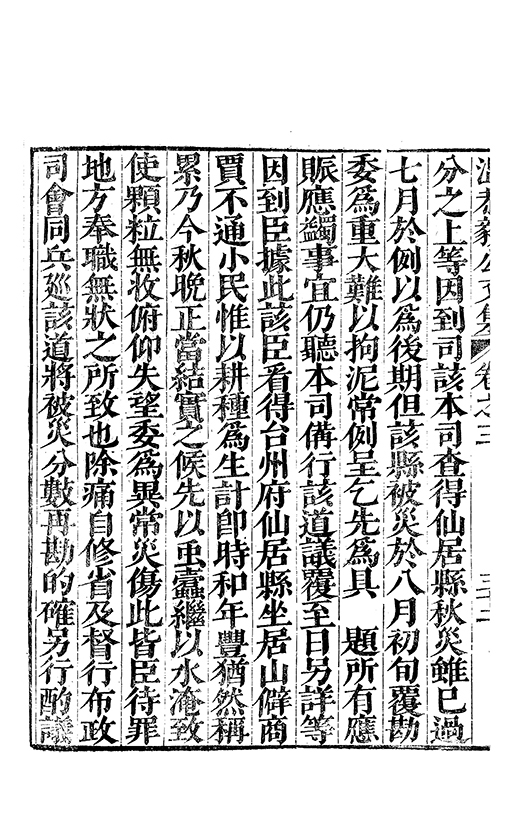 溫恭毅公文集 卷之三 三十二
分之上等因到司該本司查得仙居縣秋災雖已過
七月於例以爲後期但該縣被災於八月初旬覆勘
委爲重大難以拘泥常例呈乞先爲具 題所有應
賑應蠲事宜仍聽本司備行該道議覆至日另詳等
因到臣據此該臣看得台州府仙居縣坐居山僻商
賈不通小民惟以耕種爲生計卽時和年豐猶然稱
累乃今秋晚正當結實之候先以虫蠹繼以水淹致
使顆粒無收俯仰失望委爲異常災傷此皆臣待罪
地方奉職無狀之所致也除痛自修省及督行布政
司會同兵廵該道將被災分數再勘的確另行酌議